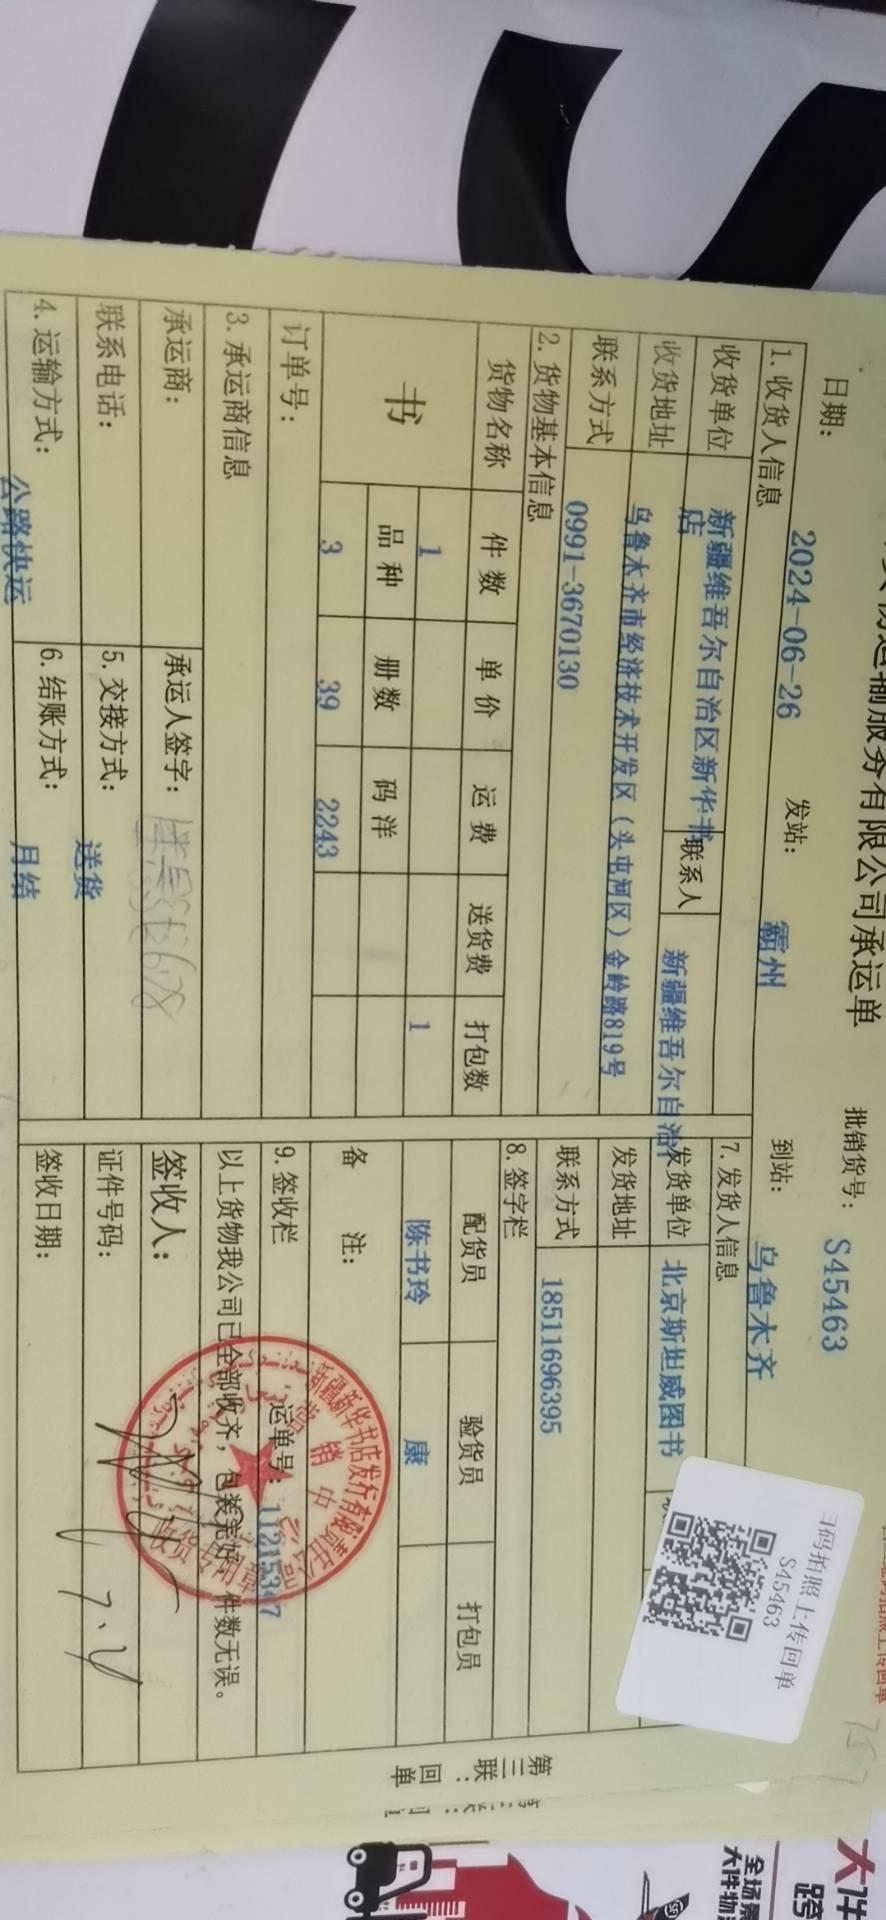 运输服务有限公司承运单
日期： 2024-06-26 发站： 霸州 到站： 乌鲁木齐
批销货号： S45463
1.收货人信息
收货单位 新疆维吾尔自治区新华书店 联系人 新疆维吾尔自治
收货地址 乌鲁木齐市经济技术开发区（头屯河区）金岭路819号
联系方式 0991-3670130
2.货物基本信息
货物名称 件数 单价 运费 送货费 打包数
书 1 1
品种 册数 码洋
3 39 2243
订单号：
3.承运商信息
承运商： 承运人签字：
联系电话： 5.交接方式： 送货
4.运输方式： 公路快运 6.结账方式： 月结
7.发货人信息
发货单位 北京斯坦威图书
发货地址
联系方式 18511696395
8.签字栏
配货员 验货员 打包员
陈书玲 康
备注：
9.签收栏 运单号： 11215347
以上货物我公司已全部收齐，包装完好，件数无误。
签收人：
证件号码：
签收日期： 7.4
新疆新华书店发行有限责任公司
营销中心
收货专用章
扫码拍照上传回单
S45463
第三联：回单
大件
跨
全场景
大件物